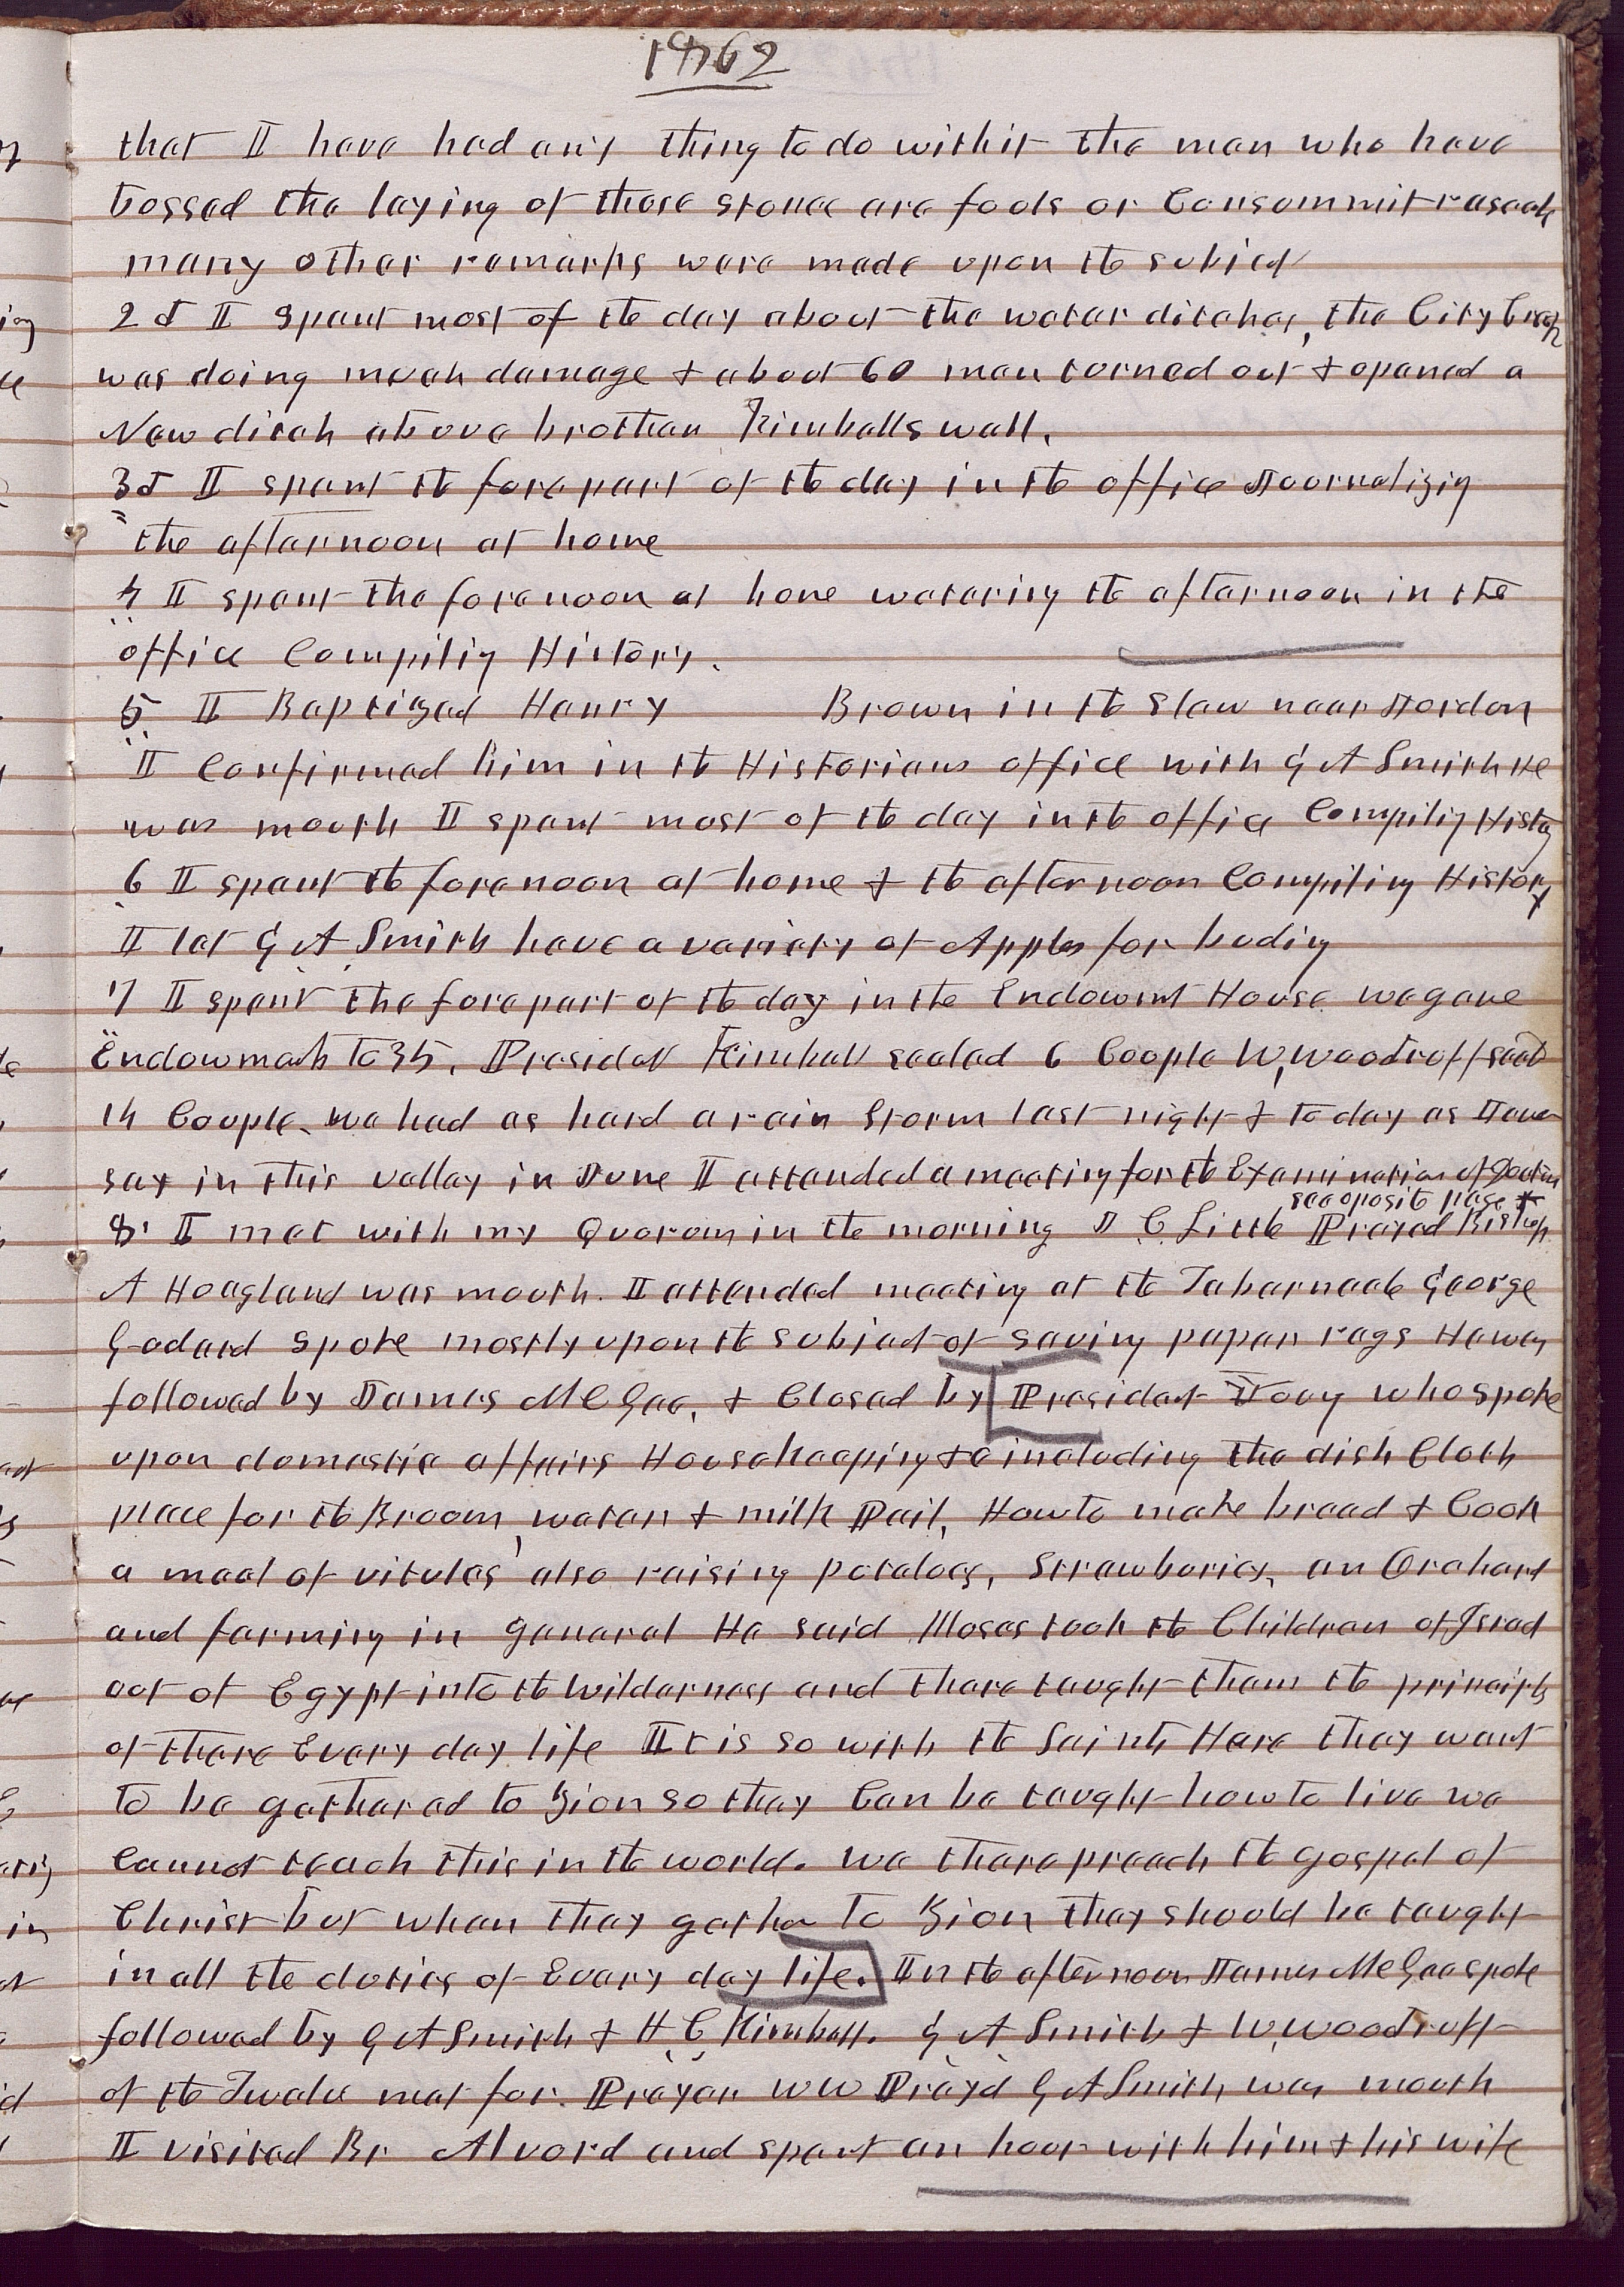 1862
that I have had any thing to do with it the men who have
bossed the laying of those stone are fools or Consummit rascals
many other remarks were made upon the subject
2d I spent most of the day about the water ditches, the City Creek
was doing much damage & about 60 men torned out & opened a
New ditch above brother Kimballs wall.
3d I spent the fore part of the day in the office Journalizing
the afternoon at home
4 I spent the forenoon at home watering the afternoon in the
office Compiling History.
5 I Baptized Henry Brown in the Slew near Jordon
I Confirmed him in the Historians office with G A Smith He
was mouth I spent most of the day in the office Compiling History
6 I spent the forenoon at home & the afternoon Compiling History
I let G A Smith have a variety of Apples for buding
7 I spent the fore part of the day in the Endowment House we gave
Endowments to 35. President Kimball sealed 6 Couple W, Woodruff seald
14 Couple. we had as hard a rain Storm last night & to day as I ever
say in this valley in June I attended a meeting for the Examination of Doctrin
see oposit page *
8 I met with my Quorom in the morning J C Little Prayed Bishop
A Hoagland was mouth. I attended meeting at the Tabernacle George
Godard spoke mostly upon the subject of saving paper rags He was
followed by James McGee, & Closed by President Young who spoke
upon domestic affairs Housekeeping &c including the dish Cloth
place for the Broom, water & milk Pail, How to make bread & Cook
a meal of vitules also raising potatoes, Strawberies, an Orchard
and farming in general He said Moses took the Children of Israel
out of Egypt into the wilderness and there taught them the principls
of there Every day life It is so with the Saints Here they want
to be gathered to Zion so they Can be taught how to live we
Cannot teach this in the world. we there preach the gospel of
Christ but when they gather to Zion they should be taught
in all the duties of Every day life. In the afternoon James McGee spoke
followed by G A Smith & H C Kimball. G A Smith & W, Woodruff
of the Twelve met for Prayer W W Prayd G A Smith was mouth
I visited Br Alvord and spent an hour with him & his wife